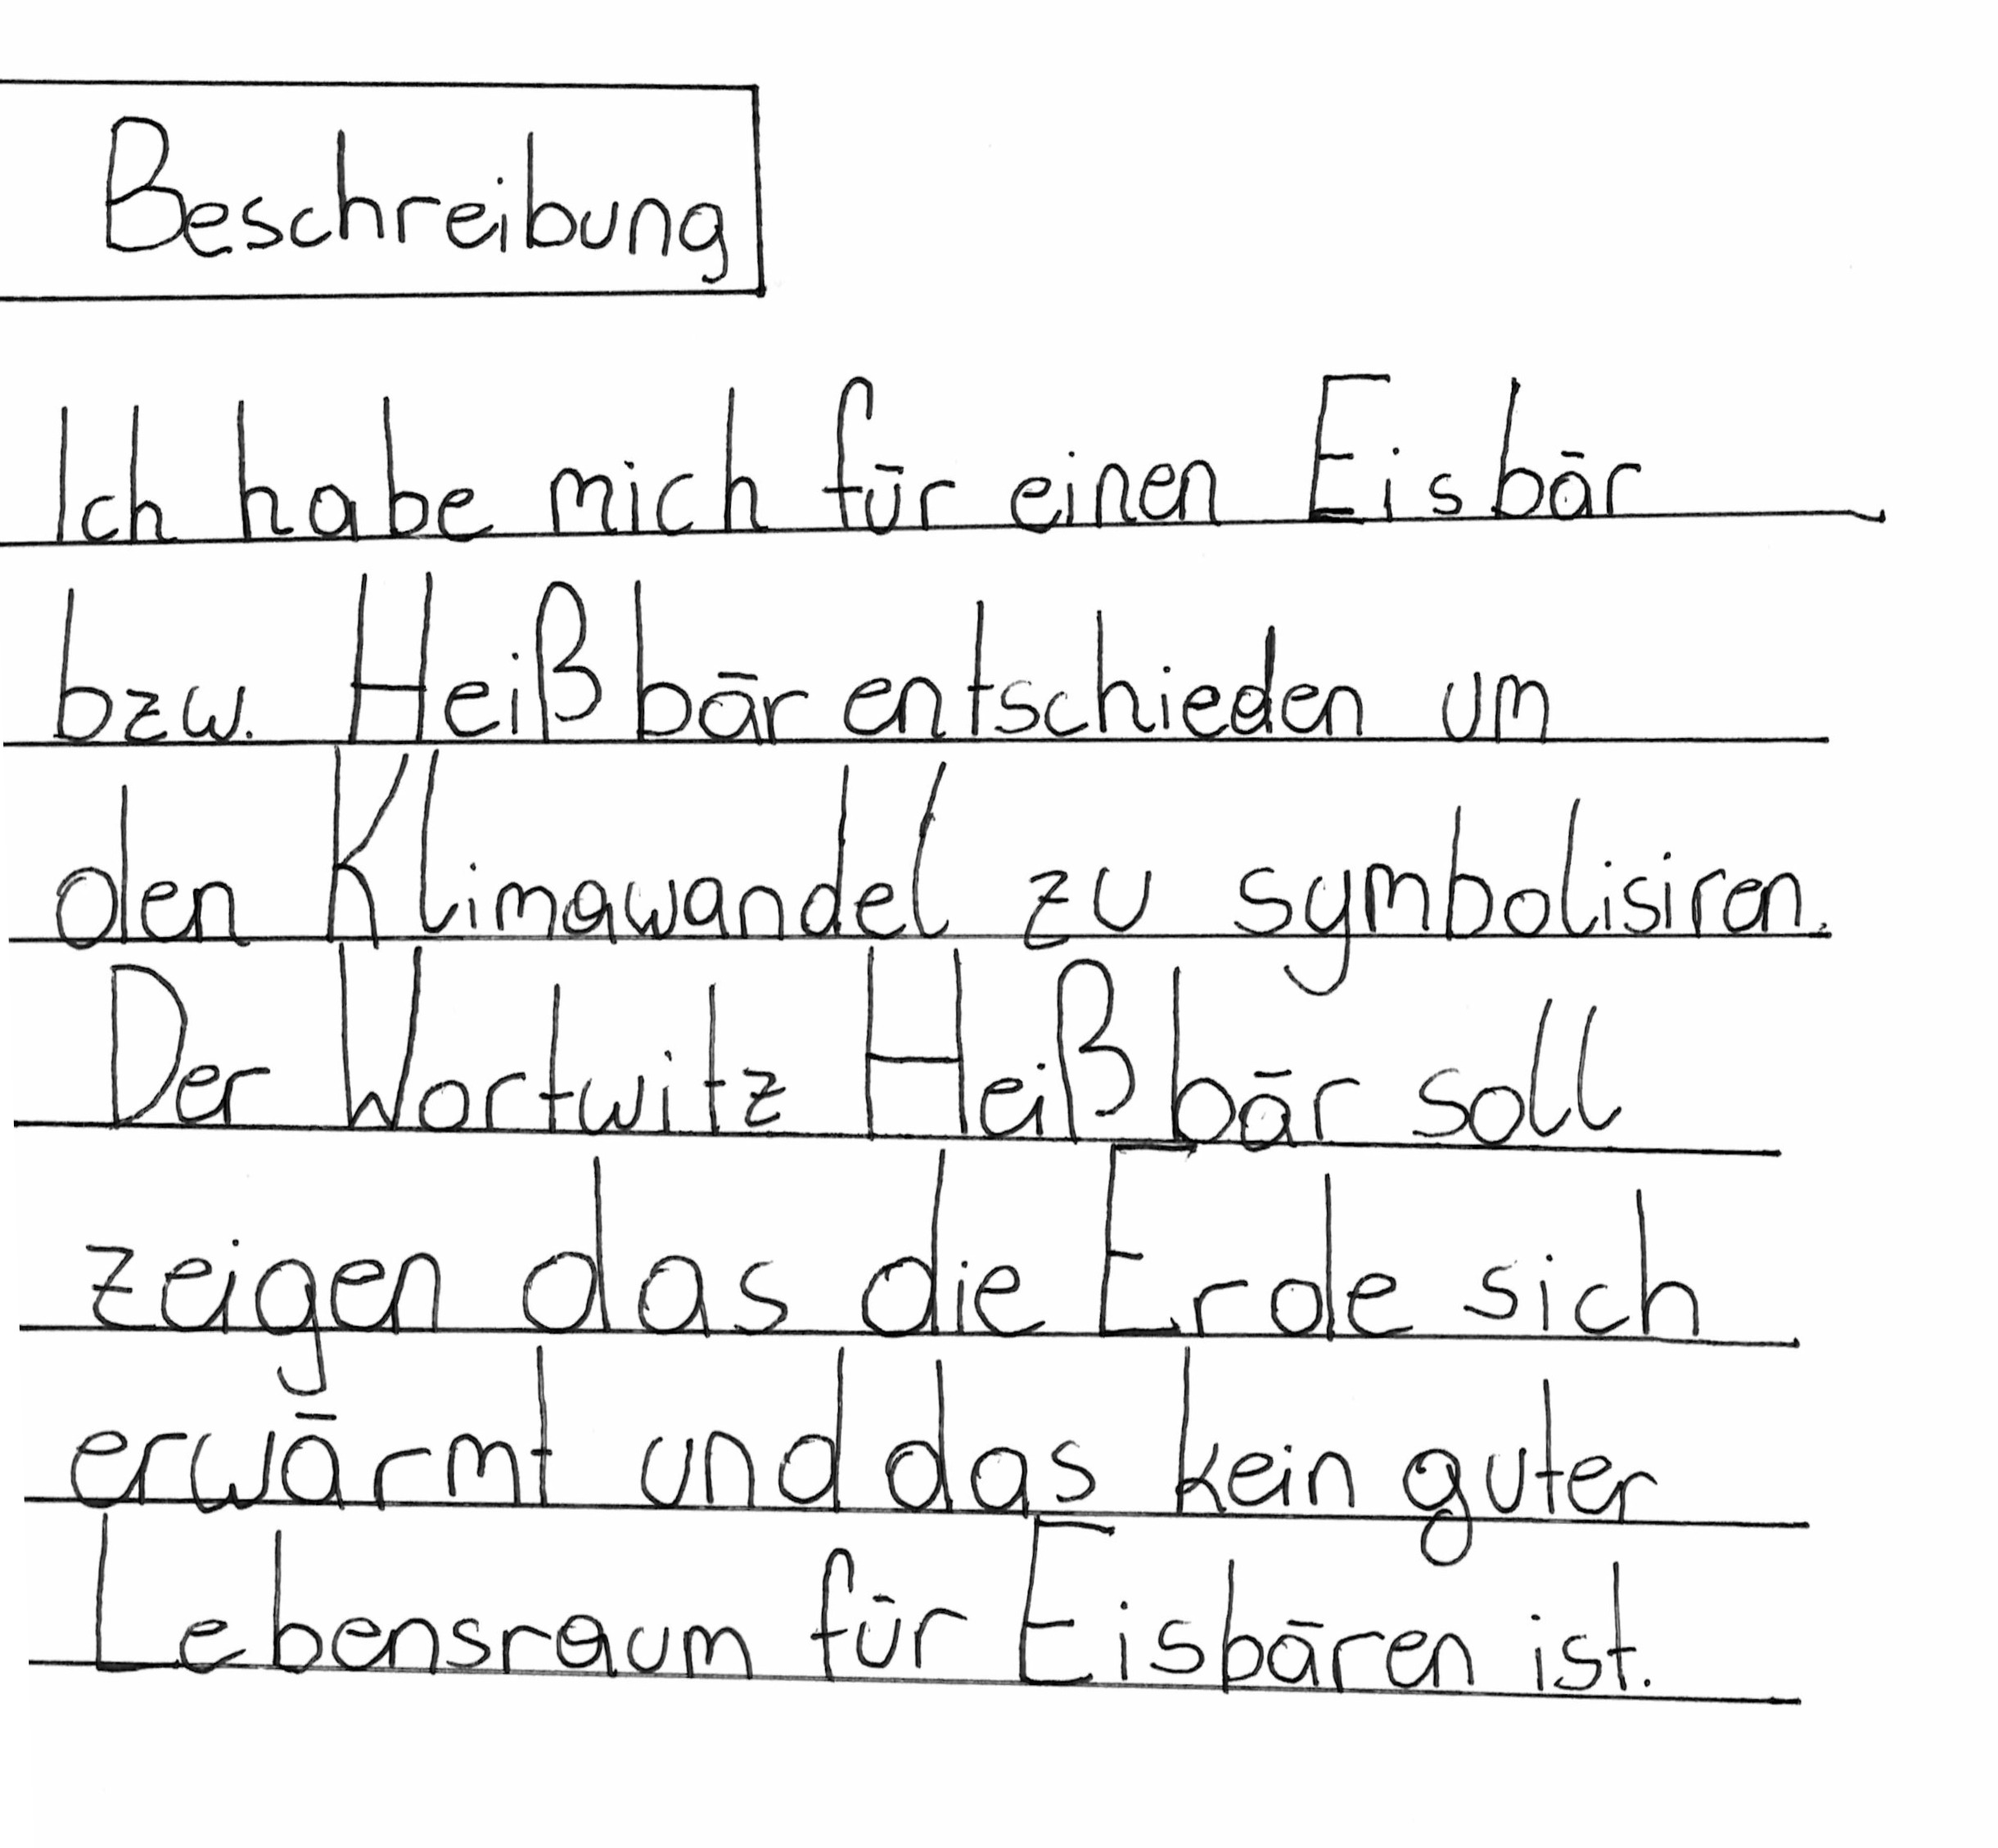 Beschreibung
Ich habe mich für einen Eisbär
bzw. Heißbär entschieden um
den Klimawandel zu symbolisiren.
Der Wortwitz Heißbär soll
zeigen das die Erde sich
erwärmt und das kein guter
Lebensraum für Eisbären ist.